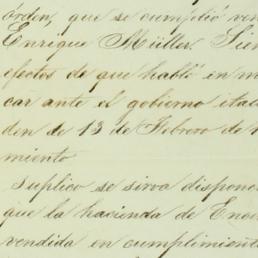 órden, que se cumplió ven
Enrique Müller. Sien
efectos de que hablé en m
car ante el gobierno ital
den de 13 de Febrero de 1
miento
Suplico se sirva disponer
que la hacienda de Enci
vendida en cumplimient